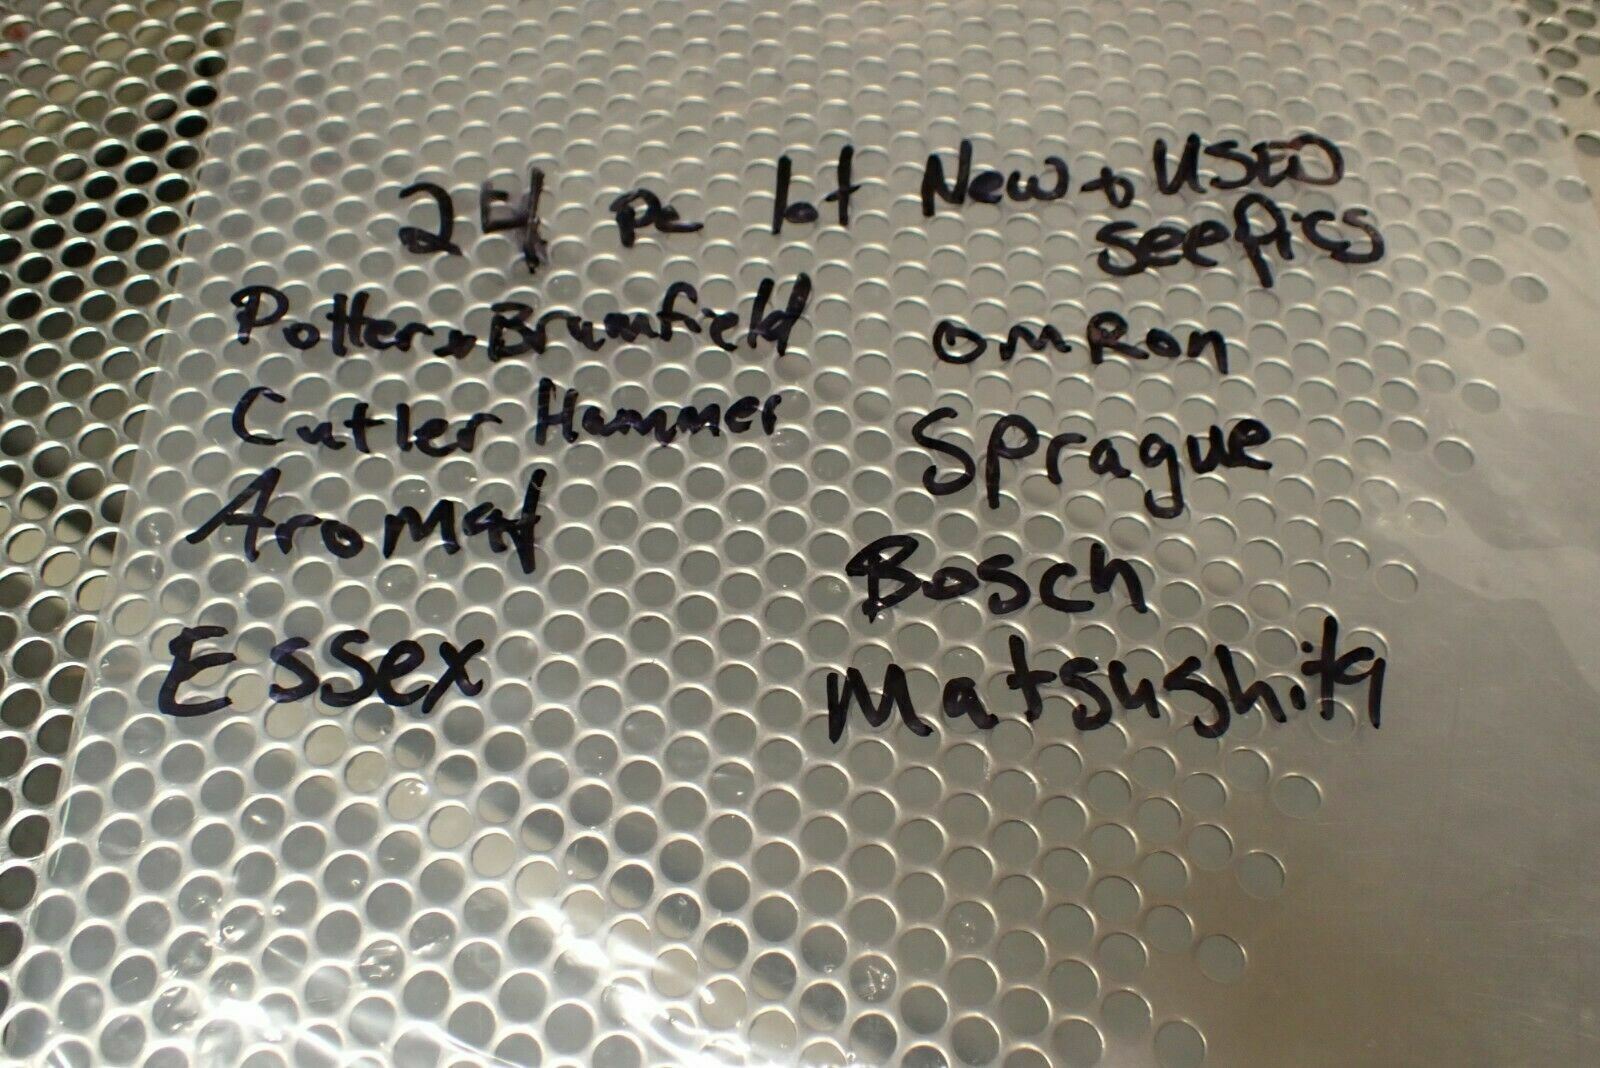 24 pc lot New + USED
see pics
Potter + Brumfield
Cutler Hammer
Aromat
Essex
omRon
Sprague
Bosch
Matsushita